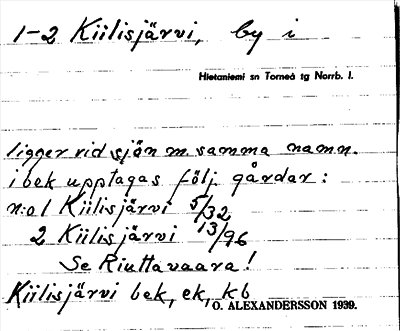 1-2 Kiilisjärvi, by i
Hietaniemi sn Torneå tg Norrb. l.
ligger vid sjön m. samma namn.
i bek upptagas följ. gårdar:
n:o 1 Kiilisjärvi 5/32
2 Kiilisjärvi 13/96
Se Riuttavaara!
Kiilisjärvi bek, ek, kb
O. ALEXANDERSSON 1939.